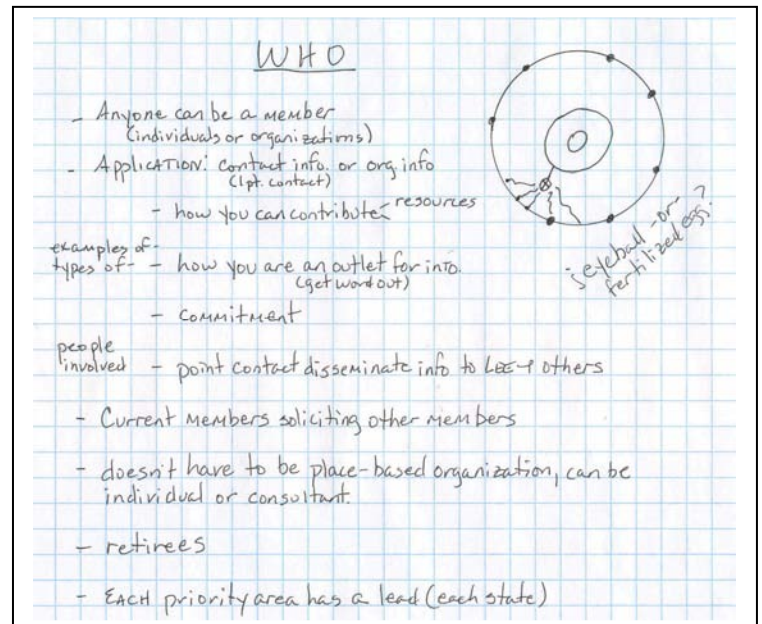 WHO
- Anyone can be a member
(individuals or organizations)
- Application: contact info. or org. info
(1pt. contact)
- how you can contribute - resources
examples of -
types of - - how you are an outlet for info.
(get word out)
- commitment
people
involved - point contact disseminate info to others
- Current members soliciting other members
- doesn't have to be place-based organization, can be
individual or consultant.
- retirees
- EACH priority area has a lead (each state)
eyeball -or-
fertilized egg?